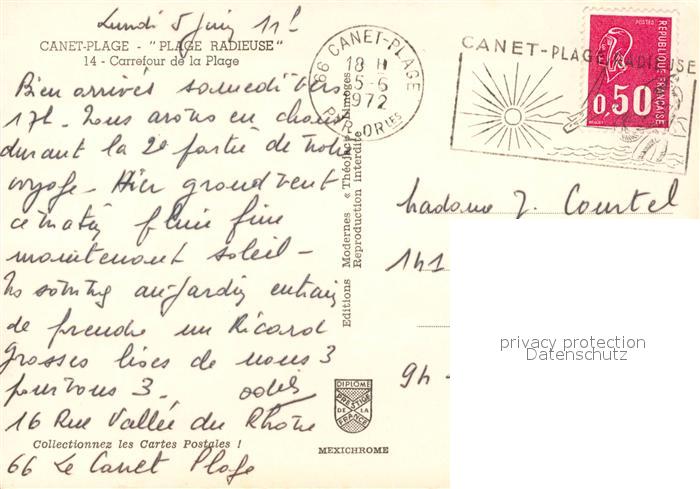 Lundi 5 juin 11h
CANET-PLAGE - "PLAGE RADIEUSE"
14 - Carrefour de la Plage
Bien arrivés samedi vers
17h. Nous avons eu chaud
durant la 2e partie de notre
voyage - Hier grand vent
ce matin pluie fine
maintenant soleil -
Ns sommes au jardin entrain
de prendre un Ricard
grosses bises de nous 3
pour vous 3. Odile
16 Rue Vallée du Rhône
Collectionnez les Cartes Postales !
66 Le Canet Plage
Editions Modernes « Théojac » Limoges
Reproduction Interdite
DIPLOME
PRESTIGE
DE LA
FRANCE
MEXICHROME
66 CANET-PLAGE
18 H
5-6
1972
PYR. ORles
CANET-PLAGE RADIEUSE
POSTES
REPUBLIQUE FRANÇAISE
0,50
Madame J. Courtel
141
94 -
privacy protection
Datenschutz